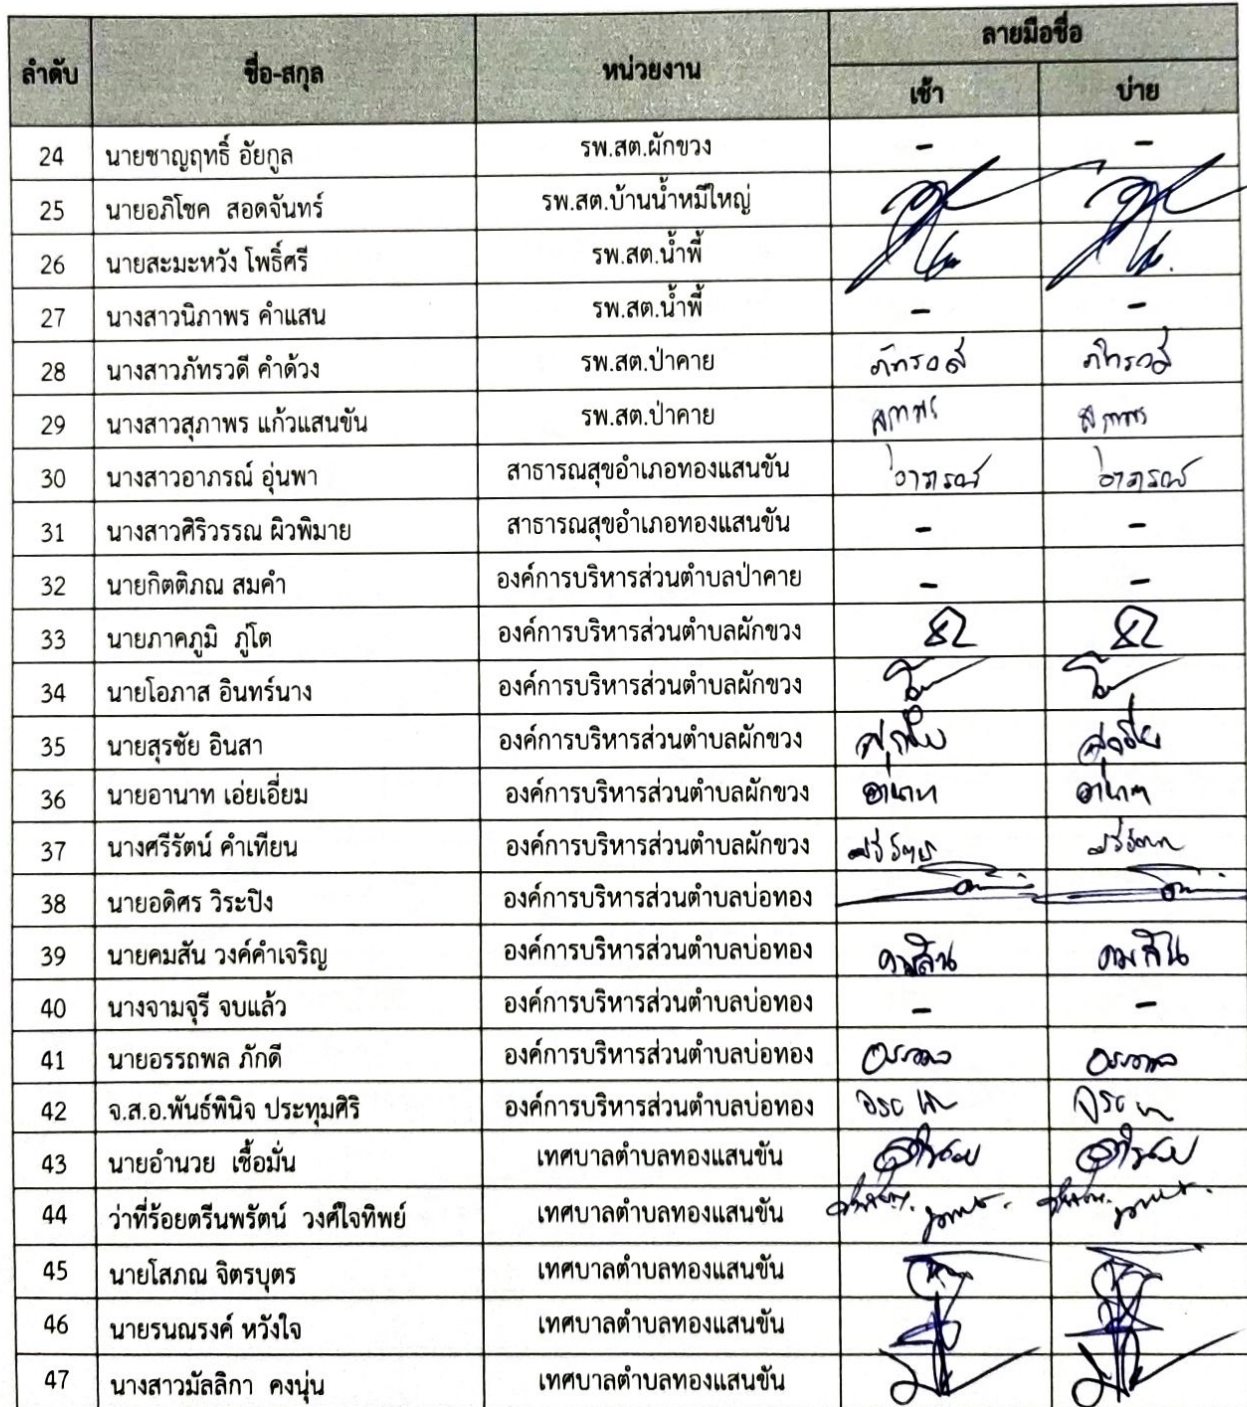 ลำดับ ชื่อ-สกุล หน่วยงาน ลายมือชื่อ
เช้า บ่าย
24 นายชาญฤทธิ์ อัยกูล รพ.สต.ผักขวง - -
25 นายอภิโชค สอดจันทร์ รพ.สต.บ้านน้ำหมีใหญ่
26 นายสะมะหวัง โพธิ์ศรี รพ.สต.น้ำพี้
27 นางสาวนิภาพร คำแสน รพ.สต.น้ำพี้ - -
28 นางสาวภัทรวดี คำด้วง รพ.สต.ป่าคาย ภัทรวดี ภัทรวดี
29 นางสาวสุภาพร แก้วแสนขัน รพ.สต.ป่าคาย สุภาพร สุภาพร
30 นางสาวอาภรณ์ อุ่นพา สาธารณสุขอำเภอทองแสนขัน อาภรณ์ อาภรณ์
31 นางสาวศิริวรรณ ผิวพิมาย สาธารณสุขอำเภอทองแสนขัน - -
32 นายกิตติภณ สมคำ องค์การบริหารส่วนตำบลป่าคาย - -
33 นายภาคภูมิ ภู่โต องค์การบริหารส่วนตำบลผักขวง
34 นายโอภาส อินทร์นาง องค์การบริหารส่วนตำบลผักขวง
35 นายสุรชัย อินสา องค์การบริหารส่วนตำบลผักขวง สุรชัย สุรชัย
36 นายอานาท เอ่ยเอี่ยม องค์การบริหารส่วนตำบลผักขวง อานาท อานาท
37 นางศรีรัตน์ คำเทียน องค์การบริหารส่วนตำบลผักขวง ศรีรัตน์ ศรีรัตน์
38 นายอดิศร วิระปิง องค์การบริหารส่วนตำบลบ่อทอง
39 นายคมสัน วงค์คำเจริญ องค์การบริหารส่วนตำบลบ่อทอง คมสัน คมสัน
40 นางจามจุรี จบแล้ว องค์การบริหารส่วนตำบลบ่อทอง - -
41 นายอรรถพล ภักดี องค์การบริหารส่วนตำบลบ่อทอง อรรถพล อรรถพล
42 จ.ส.อ.พันธ์พินิจ ประทุมศิริ องค์การบริหารส่วนตำบลบ่อทอง
43 นายอำนวย เชื้อมั่น เทศบาลตำบลทองแสนขัน
44 ว่าที่ร้อยตรีนพรัตน์ วงศ์ใจทิพย์ เทศบาลตำบลทองแสนขัน
45 นายโสภณ จิตรบุตร เทศบาลตำบลทองแสนขัน
46 นายรนณรงค์ หวังใจ เทศบาลตำบลทองแสนขัน
47 นางสาวมัลลิกา คงนุ่น เทศบาลตำบลทองแสนขัน